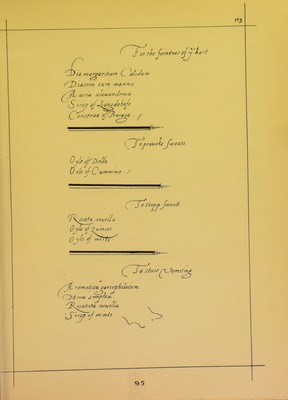 113
For the faintnes of yͤ hart
Dia margariton Calidum
Diacom cum manna
Aurea alexandrina
Sirop of
Conserve of Borage
To provoke sweate
Oyle of Dille
Oyle of Cummine
To stopp sweat
Rosata novella
Oyle of Quinces
Oyle of mints
To staie Vomiting
Aromaticu gariophilatum
simplex
Rosata novella
Sirop of mints
95